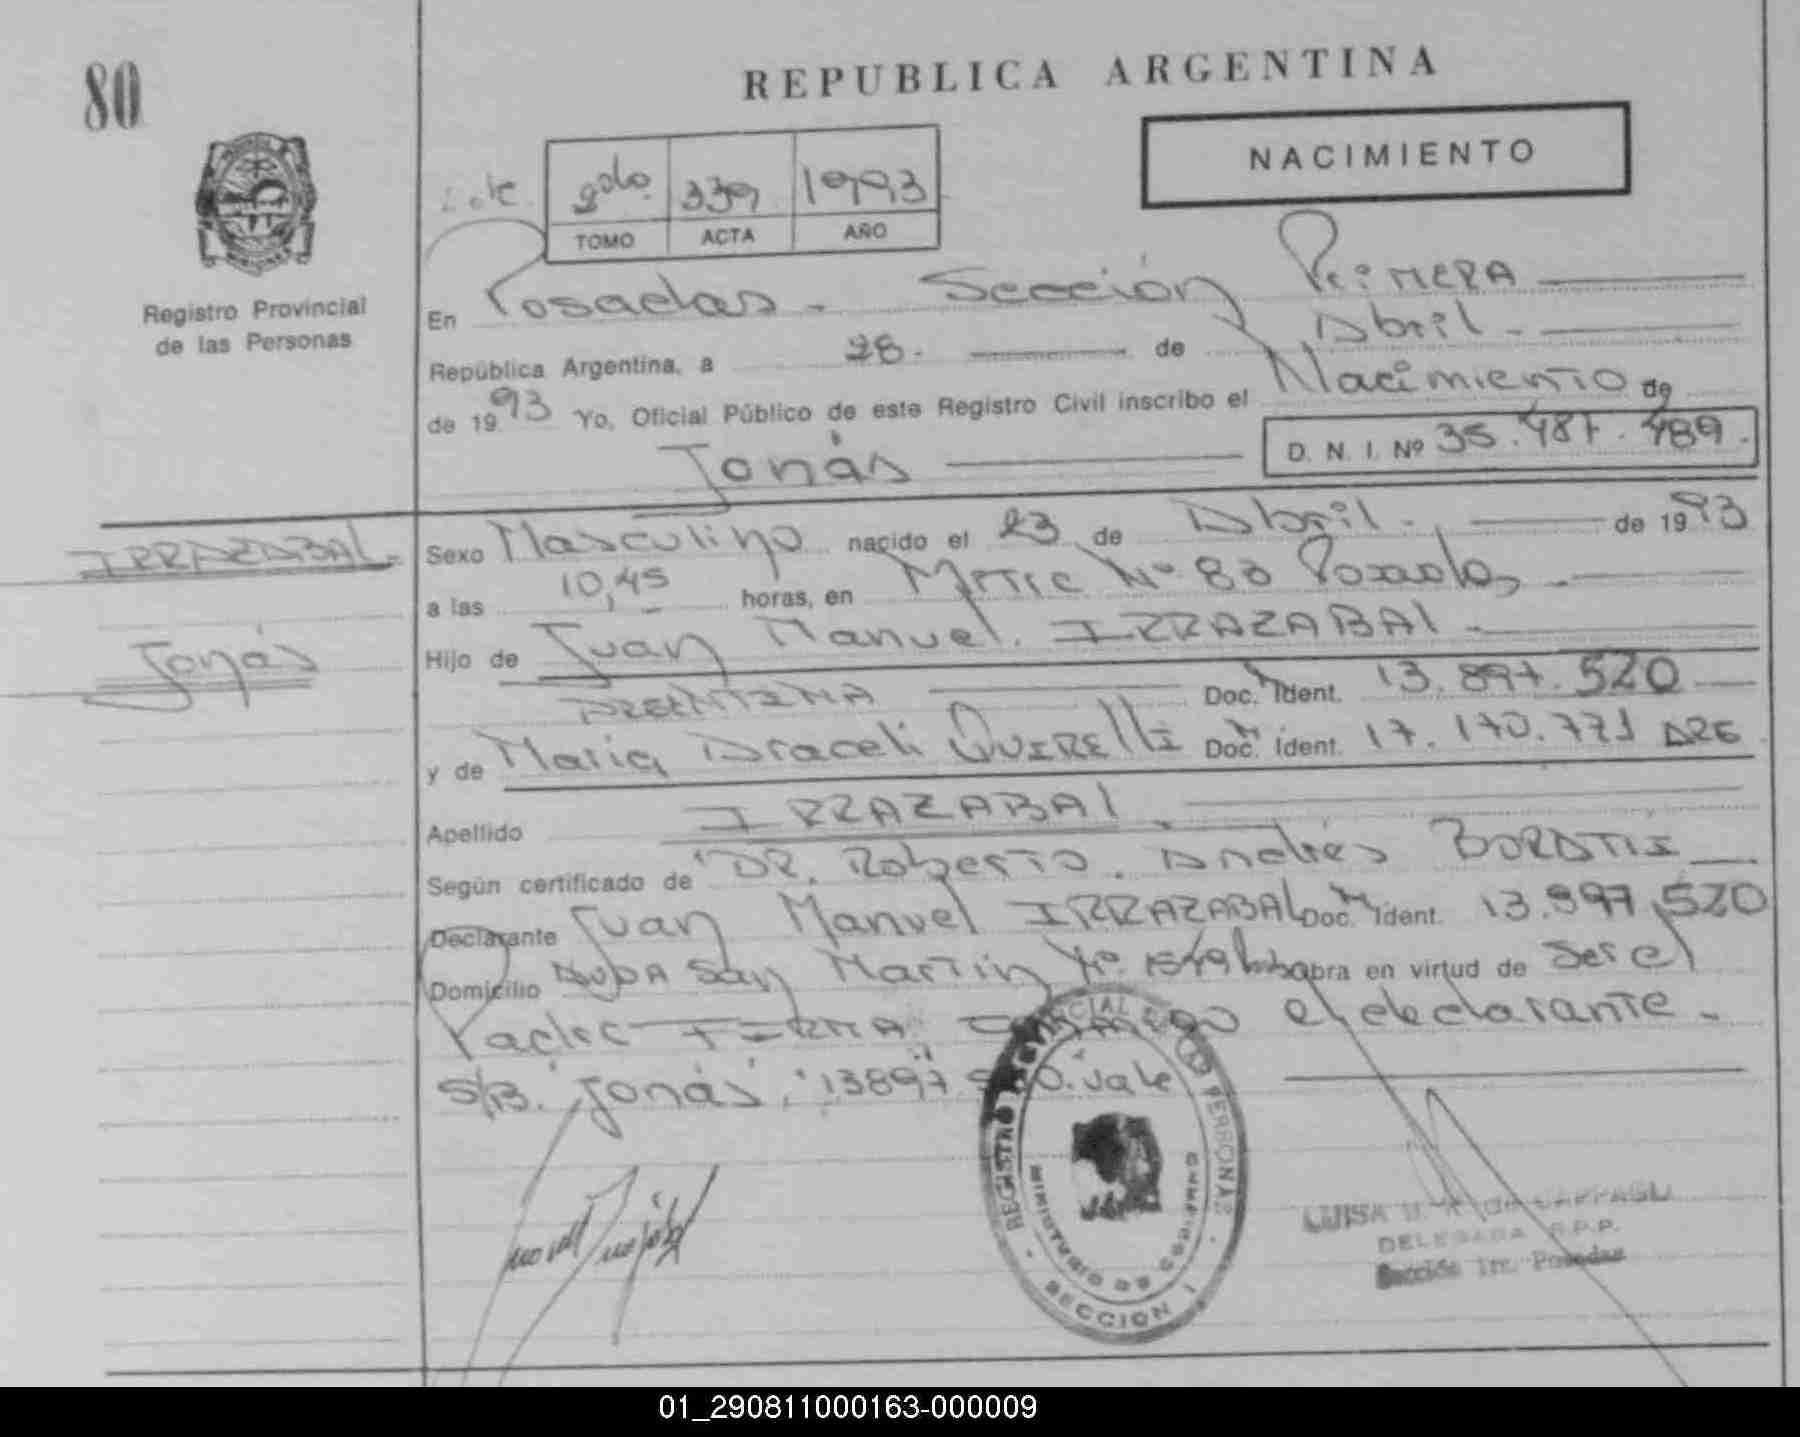 80
REPUBLICA ARGENTINA
NACIMIENTO
2do. 339 1993
TOMO ACTA AÑO
Registro Provincial
de las Personas
En Posadas - Sección Primera
República Argentina, a 28. de Abril -
de 1993 Yo, Oficial Público de este Registro Civil inscribo el Nacimiento de
Jonás
D. N. I. Nº 35.487.489.
IRRAZABAL
Jonás
Sexo Masculino nacido el 23 de Abril. de 1993
a las 10,45 horas, en Mitre Nº 80 Posadas.
Hijo de Juan Manuel. IRRAZABAl
ARGENTINA Doc. Ident. 13.897.520
y de Maria Araceli QUIREllI Doc. Ident. 17.170.771 ARG
Apellido IRRAZABAl.
Según certificado de DR. Roberto. Andrés
Declarante Juan Manuel IRRAZABAL Doc. Ident. 13.897.520
Domicilio Avda San Martín Nº obra en virtud de ser el
Padre FIRMA CONMIGO el declarante.
S/B. "Jonás", "13897. Vale
REGISTRO PROVINCIAL DE LAS PERSONAS
MINISTERIO DE GOBIERNO
SECCION 1
LUISA
DELEGADA R.P.P.
Sección 1ra. Posadas
01_290811000163-000009